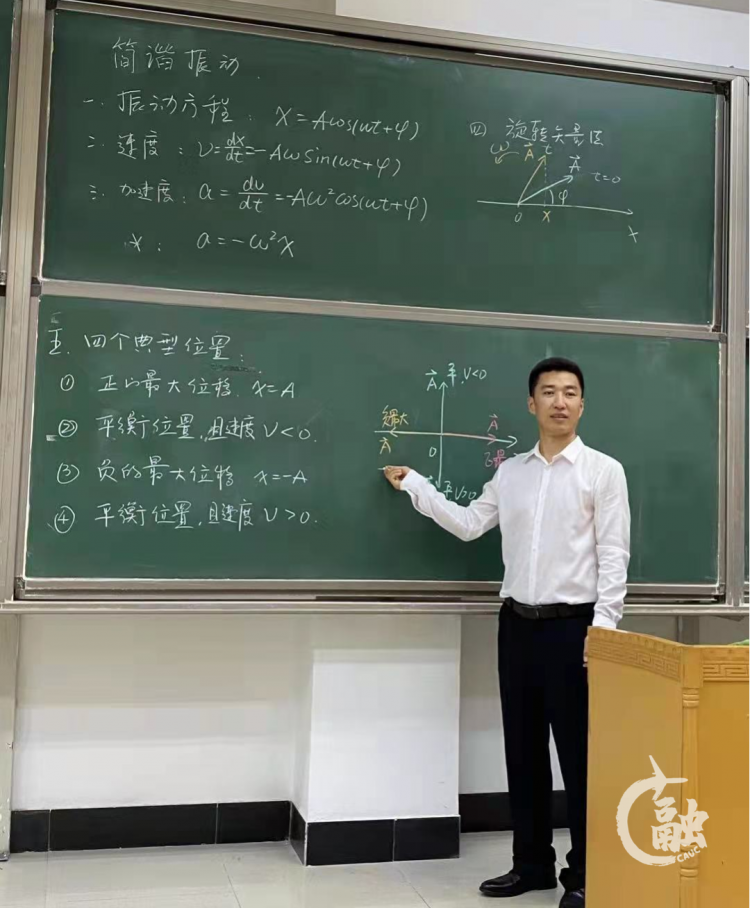 简谐振动.
一. 振动方程: x=Acos(ωt+φ)
二. 速度: v=dx/dt=-Aωsin(ωt+φ)
三. 加速度: a=dv/dt=-Aω²cos(ωt+φ)
a=-ω²x
四 旋转矢量图
ω A t
A t=0
φ
O x
x
五. 四个典型位置:
① 正的最大位移. x=A
② 平衡位置,且速度 v<0.
③ 负的最大位移 x=-A
④ 平衡位置,且速度 v>0.
A 平.v<0
最大 A
A O 正最
平v>0
融
CAUC